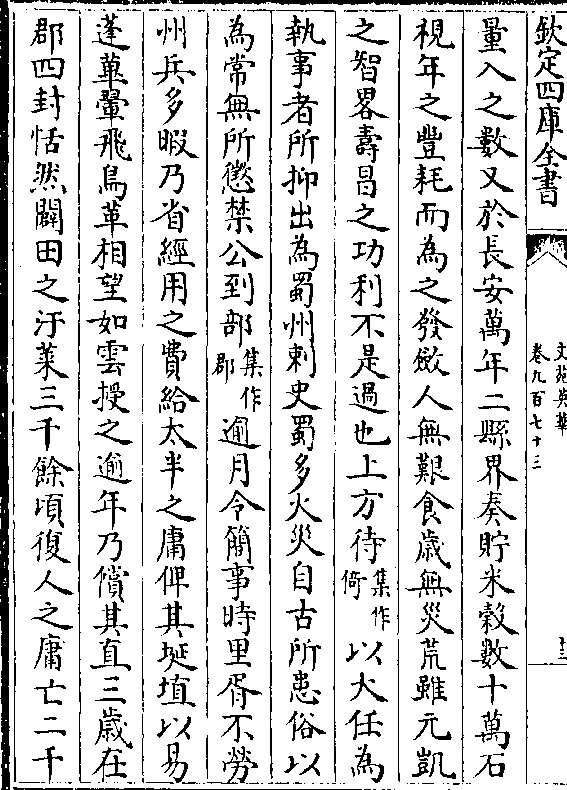 欽定四庫全書
文苑英華
卷九百七十三
十三
量入之數又於長安萬年二縣界奏貯米穀數十萬石
視年之豐耗而為之發斂人無艱食歲無災荒雖元凱
之智畧壽昌之功利不是過也上方待集作倚以大任為
執事者所抑出為蜀州刺史蜀多火災自古所患俗以
為常無所懲禁公到部集作郡逾月令簡事時里胥不勞
州兵多暇乃省經用之費給太半之庸俾其埏埴以易
蓬蓽翬飛鳥革相望如雲授之逾年乃償其直三歲在
郡四封恬然闢田之汙萊三千餘頃復人之庸亡二千